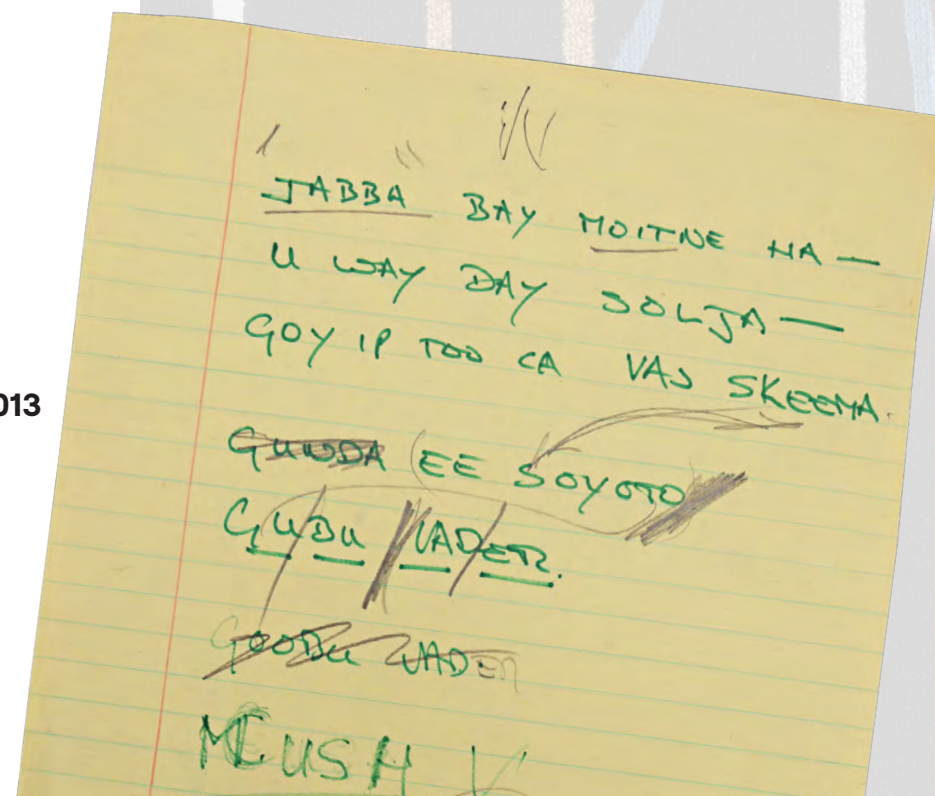 JABBA BAY MOITNE HA —
U WAY DAY SOLJA —
GOY IP TOO CA VAS SKEEMA.
013
GUUDA EE SOYOTO
GUBU VADER.
GOOBU VADER
MEUSH